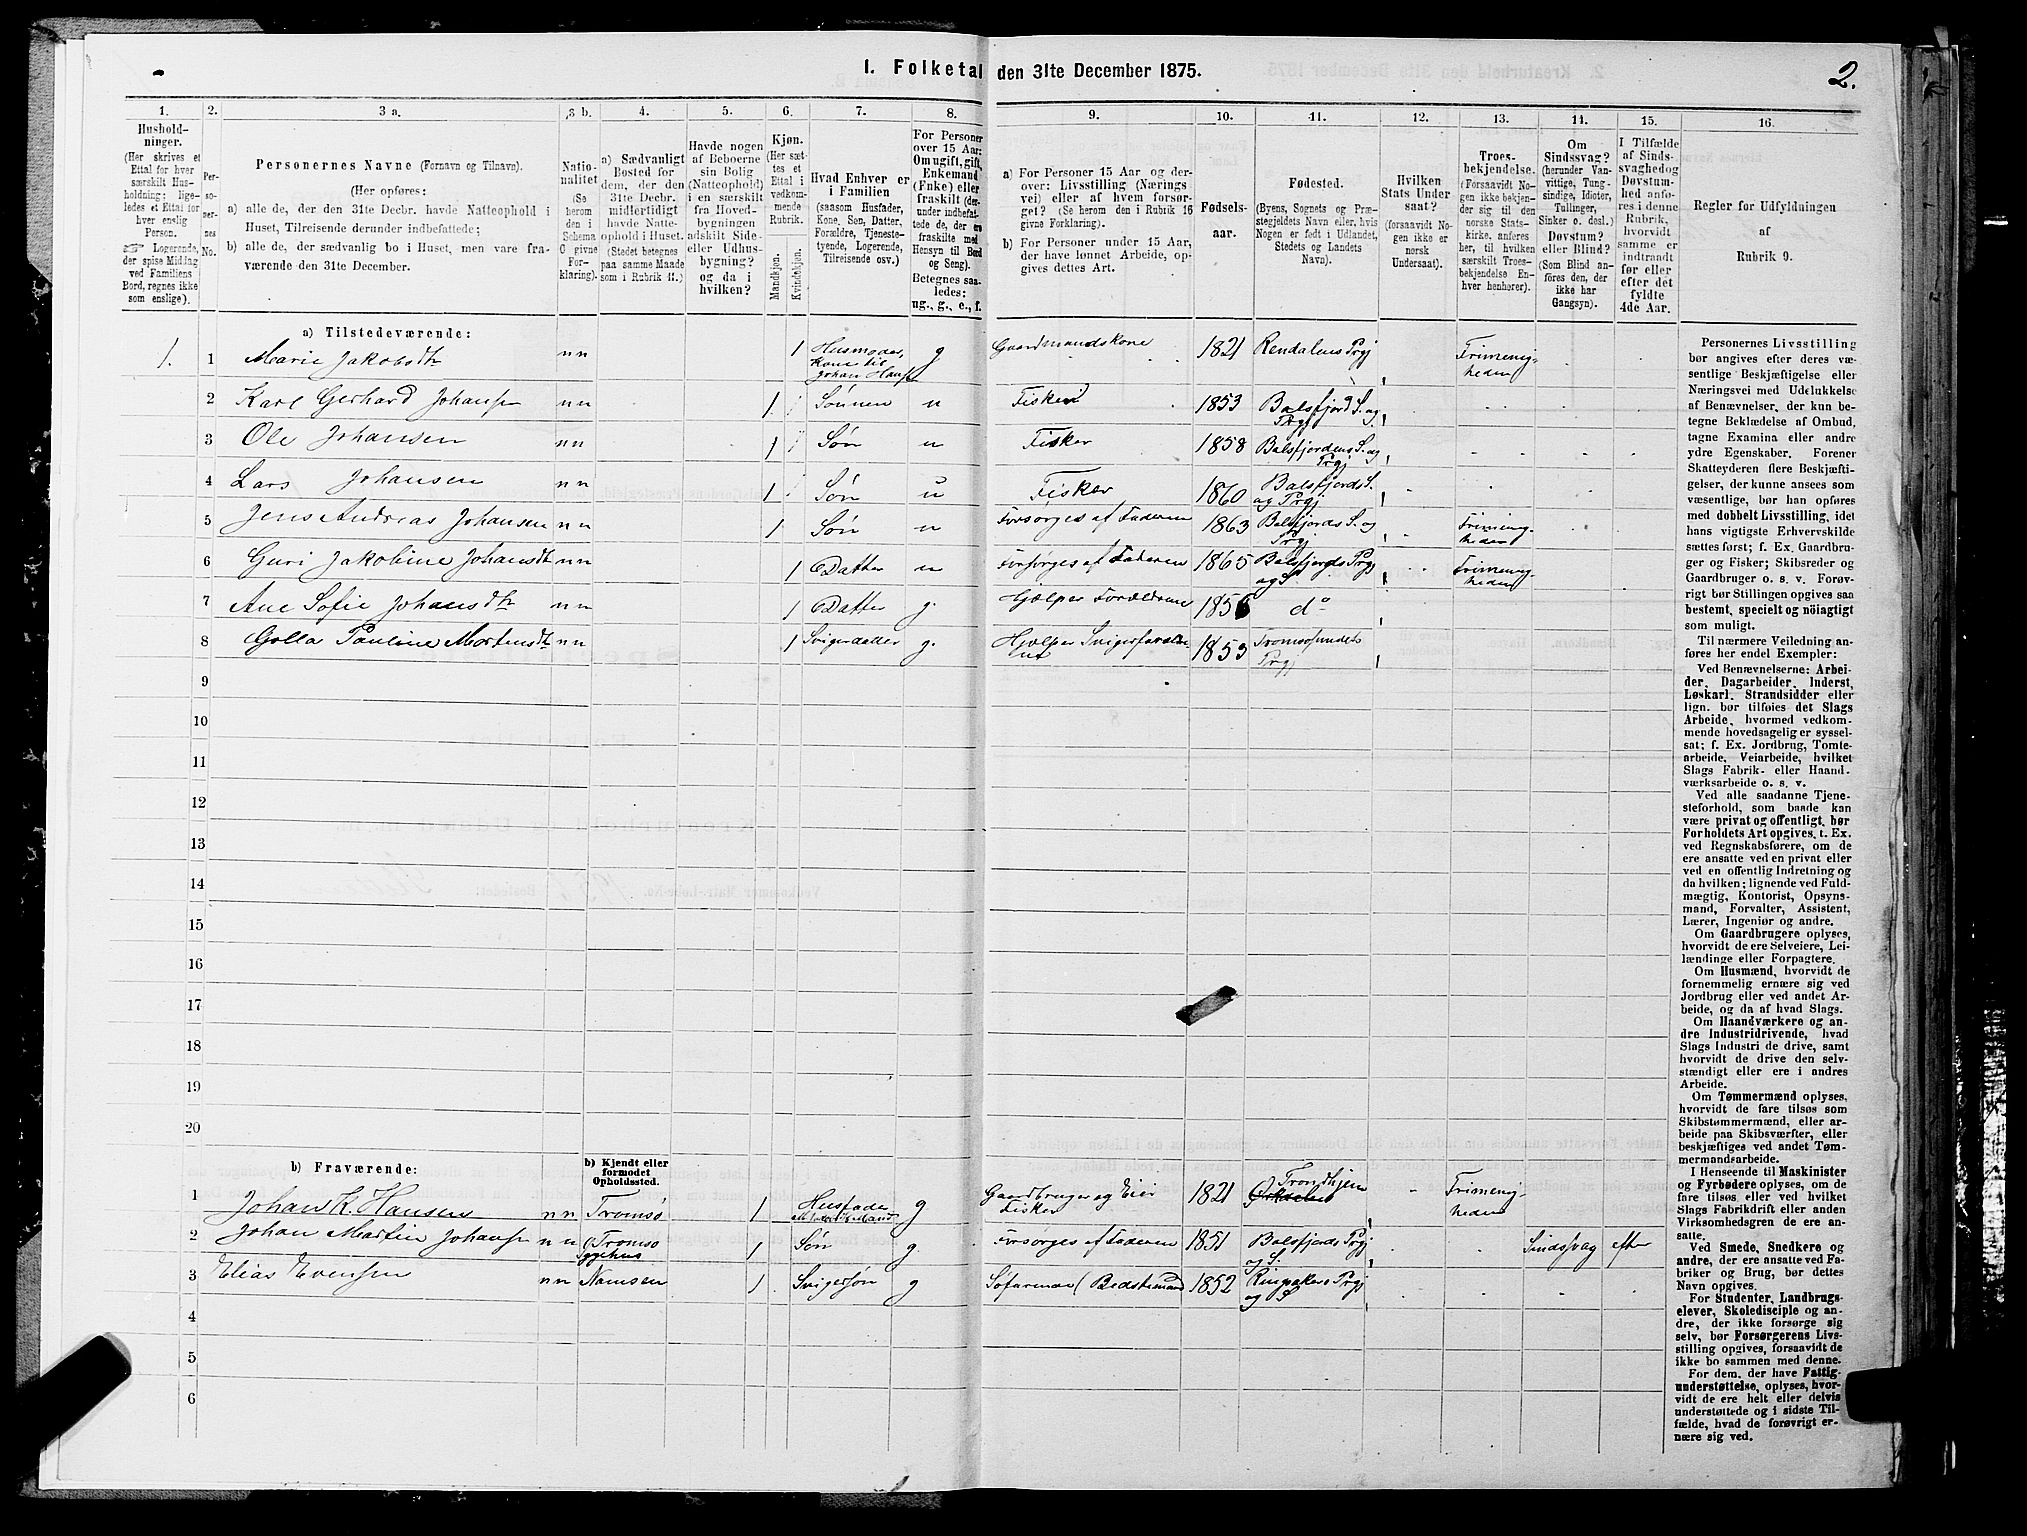 1. Folketal den 31te December 1875.
2.
1.
Hushold-
ninger.
(Her skrives et
Ettal for hver
særskilt Hus-
holdning; lige-
ledes et Ettal for
hver enslig
Person.
Logerende,
der spise Middag
ved Familiens
Bord, regnes ikke
som enslige).
2.
Per-
so-
ner-
nes
No.
3 a.
Personernes Navne (Fornavn og Tilnavn).
(Her opføres:
a) alle de, der den 31te Decbr. havde Natteophold i
Huset, Tilreisende derunder indbefattede;
b) alle de, der sædvanlig bo i Huset, men vare fra-
værende den 31te December.
3 b.
Natio-
nalitet
(Se
herom
den i
Schema
C givne
For-
klaring).
4.
a) Sædvanligt
Bosted for
dem, der den
31te Decbr.
midlertidigt
havde Natte-
ophold i Huset.
(Stedet betegnes
paa samme Maade
som i Rubrik 11.)
5.
Havde nogen
af Beboerne
sin Bolig
(Natteophold)
i en særskilt
fra Hoved-
bygningen
adskilt Side-
eller Udhus-
bygning?
og da i
hvilken?
6.
Kjøn.
(Her sæt-
tes et
Ettal i
vedkom-
mende
Rubrik.
Mandkjøn.
Kvindekjøn.
7.
Hvad Enhver er
i Familien
(saasom Husfader,
Kone, Søn, Datter,
Forældre, Tjeneste-
tyende, Logerende,
Tilreisende osv.)
8.
For Personer
over 15 Aar:
Om ugift, gift,
Enkemand
(Enke) eller
fraskilt (der-
under indbefat-
tede de, der ere
fraskilte med
Hensyn til Bord
og Seng).
Betegnes saa-
ledes:
ug., g., e., f.
9.
a) For Personer 15 Aar og der-
over: Livsstilling (Nærings
vei) eller af hvem forsør-
get? (Se herom den i Rubrik 16
givne Forklaring).
b) For Personer under 15 Aar,
der have lønnet Arbeide, op-
gives dettes Art.
10.
Fødsels-
aar.
11.
Fødested.
(Byens, Sognets og Præ-
stegjeldets Navn eller, hvis
Nogen er født i Udlandet,
Stedets og Landets
Navn).
12.
Hvilken
Stats Under
saat?
(forsaavidt No-
gen ikke er
norsk
Undersaat).
13.
Troes-
bekjendelse.
(Forsaavidt No-
gen ikke bekjen-
der sig til den
norske Stats-
kirke, anføres
her, til hvilken
særskilt Troes-
bekjendelse En-
hver henhører).
14.
Om
Sindssvag?
(herunder Van-
vittige, Tung-
sindige, Idioter,
Tullinger,
Sinker o. desl.)
Døvstum?
eller Blind?
(Som Blind an-
føres den, der
ikke har
Gangsyn).
15.
I Tilfælde
af Sinds-
svaghed og
Døvstum-
hed anfø-
res i denne
Rubrik,
hvorvidt
samme er
indtraadt
før eller
efter det
fyldte
4de Aar.
16.
Regler for Udfyldningen
af
Rubrik 9.
a) Tilstedeværende:
1. 1 Marie Jakobsdtr nn 1 Husmoder, Kone til Johan Hansen g Gaardmandskone 1821 Rendalens Prgj Frimenig-
heden
2 Karl Gerhard Johansen nn 1 Sønnen u Fisker 1853 Balsfjord S. og Prgj
3 Ole Johansen nn 1 Søn u Fisker 1858 Balsfjordens S. og Prgj
4 Lars Johansen nn 1 Søn u Fisker 1860 Balsfjords S. og Prgj
5 Jens Andreas Johansen nn 1 Søn u Forsørges af Faderen 1863 Balsfjords S. og Prgj Frimenig-
heden
6 Guri Jakobine Johansdt nn 1 Datter u Forsørges af Faderen 1865 Balsfjords Prgj og S Frimenig-
heden
7 Ane Sofie Johansdtr nn 1 Datter g. Hjælper Forældrene 1856 do
8 Golla Pauline Mortensdt nn 1 Svigerdatter g. Hjælper Svigerforældre-
ne 1853 Tromsøsundets Prgj
9
10
11
12
13
14
15
16
17
18
19
20
b) Fraværende:
b) Kjendt eller
formodet
Opholdssted.
1 Johan K. Hansen nn Tromsø 1 Husfader g Gaardbruger og Eier
Fisker 1821 Trondhjem Frimenig-
heden
2 Johan Martin Johansen nn Tromsø Sygehus 1 Søn g. Forsørges af Faderen 1851 Balsfjords Prgj og S. Sindssvag efter
3 Elias Evensen nn Namsen 1 Svigersøn g Søfarende (Bedstemand 1852 Ringsakers Prgj og S
4
5
6
Personernes Livsstilling
bør angives efter deres væ-
sentlige Beskjæftigelse eller
Næringsvei med Udelukkelse
af Benævnelser, der kun be-
tegne Beklædelse af Ombud,
tagne Examina eller andre
ydre Egenskaber. Forener
Skatteyderen flere Beskjæfti-
gelser, der kunne ansees som
væsentlige, bør han opføres
med dobbelt Livsstilling, idet
hans vigtigste Erhvervskilde
sættes først; f. Ex. Gaardbru-
ger og Fisker; Skibsreder og
Gaardbruger o. s. v. Forøv-
rigt bør Stillingen opgives saa
bestemt, specielt og nöiagtigt
som muligt.
Til nærmere Veiledning an-
føres her endel Exempler:
Ved Benævnelserne: Arbei-
der, Dagarbeider, Inderst,
Løskarl, Strandsidder eller
lign. bør tilføies det Slags
Arbeide, hvormed vedkom-
mende hovedsagelig er syssel-
sat; f. Ex. Jordbrug, Tomte-
arbeide, Veiarbeide, hvilket
Slags Fabrik- eller Haand-
værksarbeide o. s. v.
Ved alle saadanne Tjene-
steforhold, som baade kan
være privat og offentligt, bør
Forholdets Art opgives, t. Ex.
ved Regnskabsførere, om de
ere ansatte ved en privat eller
ved en offentlig Indretning og
da hvilken; lignende ved Fuld-
mægtig, Kontorist, Opsyns-
mand, Forvalter, Assistent,
Lærer, Ingeniør og andre.
Om Gaardbrugere oplyses,
hvorvidt de ere Selveiere, Lei-
lændinge eller Forpagtere.
Om Husmænd, hvorvidt de
fornemmelig ernære sig ved
Jordbrug eller ved andet Ar-
beide, og da af hvad Slags.
Om Haandværkere og an-
dre Industridrivende, hvad
Slags Industri de drive, samt
hvorvidt de drive den selv-
stændigt eller ere i andres
Arbeide.
Om Tømmermænd oplyses,
hvorvidt de fare tilsøs som
Skibstømmermænd, eller ar-
beide paa Skibsværfter, eller
beskjæftiges ved andet Tøm-
mermandsarbeide.
I Henseende til Maskinister
og Fyrbødere oplyses, om de
fare tilsøs, eller ved hvilket
Slags Fabrikdrift eller anden
Virksomhedsgren de ere an-
satte.
Ved Smede, Snedkere og
andre, der ere ansatte ved Fa-
briker og Brug, bør dettes
Navn opgives.
For Studenter, Landbrugs-
elever, Skoledisciple og an-
dre, der ikke forsørge sig
selv, bør Forsørgerens Livs-
stilling opgives, forsaavidt de
ikke bo sammen med denne.
For dem, der have Fattig-
understøttelse, oplyses, hvor-
vidt de ere helt eller delvis
understøttede og i sidste Til-
fælde, hvad de forøvrigt er-
nære sig ved.